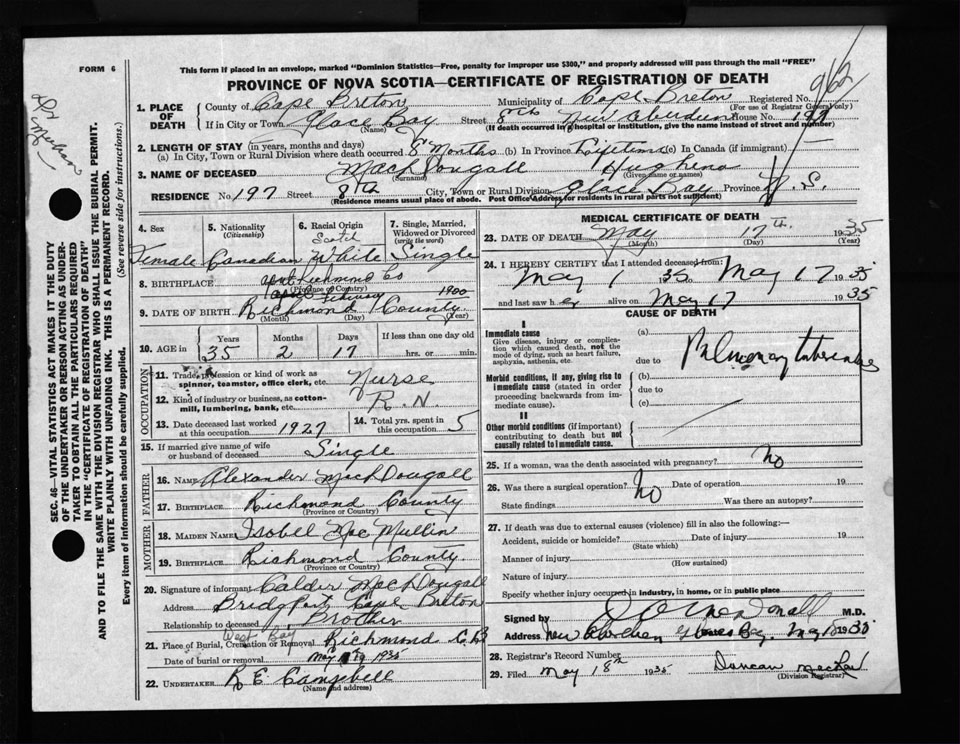 FORM 6
This form if placed in an envelope, marked "Dominion Statistics—Free, penalty for improper use $300," and properly addressed will pass through the mail "FREE"
PROVINCE OF NOVA SCOTIA—CERTIFICATE OF REGISTRATION OF DEATH
962
1. PLACE OF DEATH
County of Cape Breton Municipality of Cape Breton Registered No.
(For use of Registrar General only)
If in City or Town Glace Bay Street 8th New Aberdeen House No. 197
(Name) (If death occurred in a hospital or institution, give the name instead of street and number)
2. LENGTH OF STAY (in years, months and days)
(a) In City, Town or Rural Division where death occurred 8 Months (b) In Province Lifetime (c) In Canada (if immigrant)
3. NAME OF DECEASED MacDougall Hughena
(Surname) (Given name or names)
RESIDENCE No. 197 Street 8th City, Town or Rural Division Glace Bay Province N. S.
(Residence means usual place of abode. Post Office Address for residents in rural parts not sufficient)
4. Sex 5. Nationality (Citizenship) 6. Racial Origin 7. Single, Married, Widowed or Divorced (write the word)
Scotch
Female Canadian White Single
8. BIRTHPLACE Richmond Co
(Province or Country)
1900
9. DATE OF BIRTH Richmond County
(Month) (Day) (Year)
10. AGE in Years Months Days If less than one day old
35 2 17 hrs. or min.
OCCUPATION
11. Trade, profession or kind of work as spinner, teamster, office clerk, etc. Nurse
12. Kind of industry or business, as cotton-mill, lumbering, bank, etc. R. N
13. Date deceased last worked at this occupation 1927 14. Total yrs. spent in this occupation 5
15. If married give name of wife or husband of deceased Single
FATHER
16. NAME Alexander MacDougall
17. BIRTHPLACE Richmond County
(Province or Country)
MOTHER
18. MAIDEN NAME Isobel MacMullin
19. BIRTHPLACE Richmond County
(Province or Country)
20. Signature of informant Calder MacDougall
Address Bridgport Cape Breton
Relationship to deceased Brother
West Bay
21. Place of Burial, Cremation or Removal Richmond C.B
Date of burial or removal May 19 1935
22. UNDERTAKER R E Campbell
(Name and address)
MEDICAL CERTIFICATE OF DEATH
23. DATE OF DEATH May 17th 1935
(Month) (Day) (Year)
24. I HEREBY CERTIFY that I attended deceased from:
May 1 1935 May 17 1935
and last saw her alive on May 17 1935
CAUSE OF DEATH
I
Immediate cause
Give disease, injury or complication which caused death, not the mode of dying, such as heart failure, asphyxia, asthenia, etc.
(a)
due to Pulmonary tuberculosis
Morbid conditions, if any, giving rise to immediate cause (stated in order proceeding backwards from immediate cause).
(b)
due to
(c)
II
Other morbid conditions (if important) contributing to death but not causally related to immediate cause.
25. If a woman, was the death associated with pregnancy? No
26. Was there a surgical operation? No Date of operation 19
State findings Was there an autopsy?
27. If death was due to external causes (violence) fill in also the following:—
Accident, suicide or homicide? Date of injury 19
(State which)
Manner of injury
(How sustained)
Nature of injury
Specify whether injury occurred in industry, in home, or in public place
Signed by M.D.
Address New Aberdeen Glace Bay. May 1935
28. Registrar's Record Number
29. Filed May 18th 1935 Duncan
(Division Registrar)
SEC. 46—VITAL STATISTICS ACT MAKES IT THE DUTY
OF THE UNDERTAKER OR PERSON ACTING AS UNDER-
TAKER TO OBTAIN ALL THE PARTICULARS REQUIRED
IN THE "CERTIFICATE OF REGISTRATION OF DEATH"
AND TO FILE THE SAME WITH THE DIVISION REGISTRAR WHO SHALL ISSUE THE BURIAL PERMIT.
WRITE PLAINLY WITH UNFADING INK. THIS IS A PERMANENT RECORD.
Every item of information should be carefully supplied. (See reverse side for instructions.)